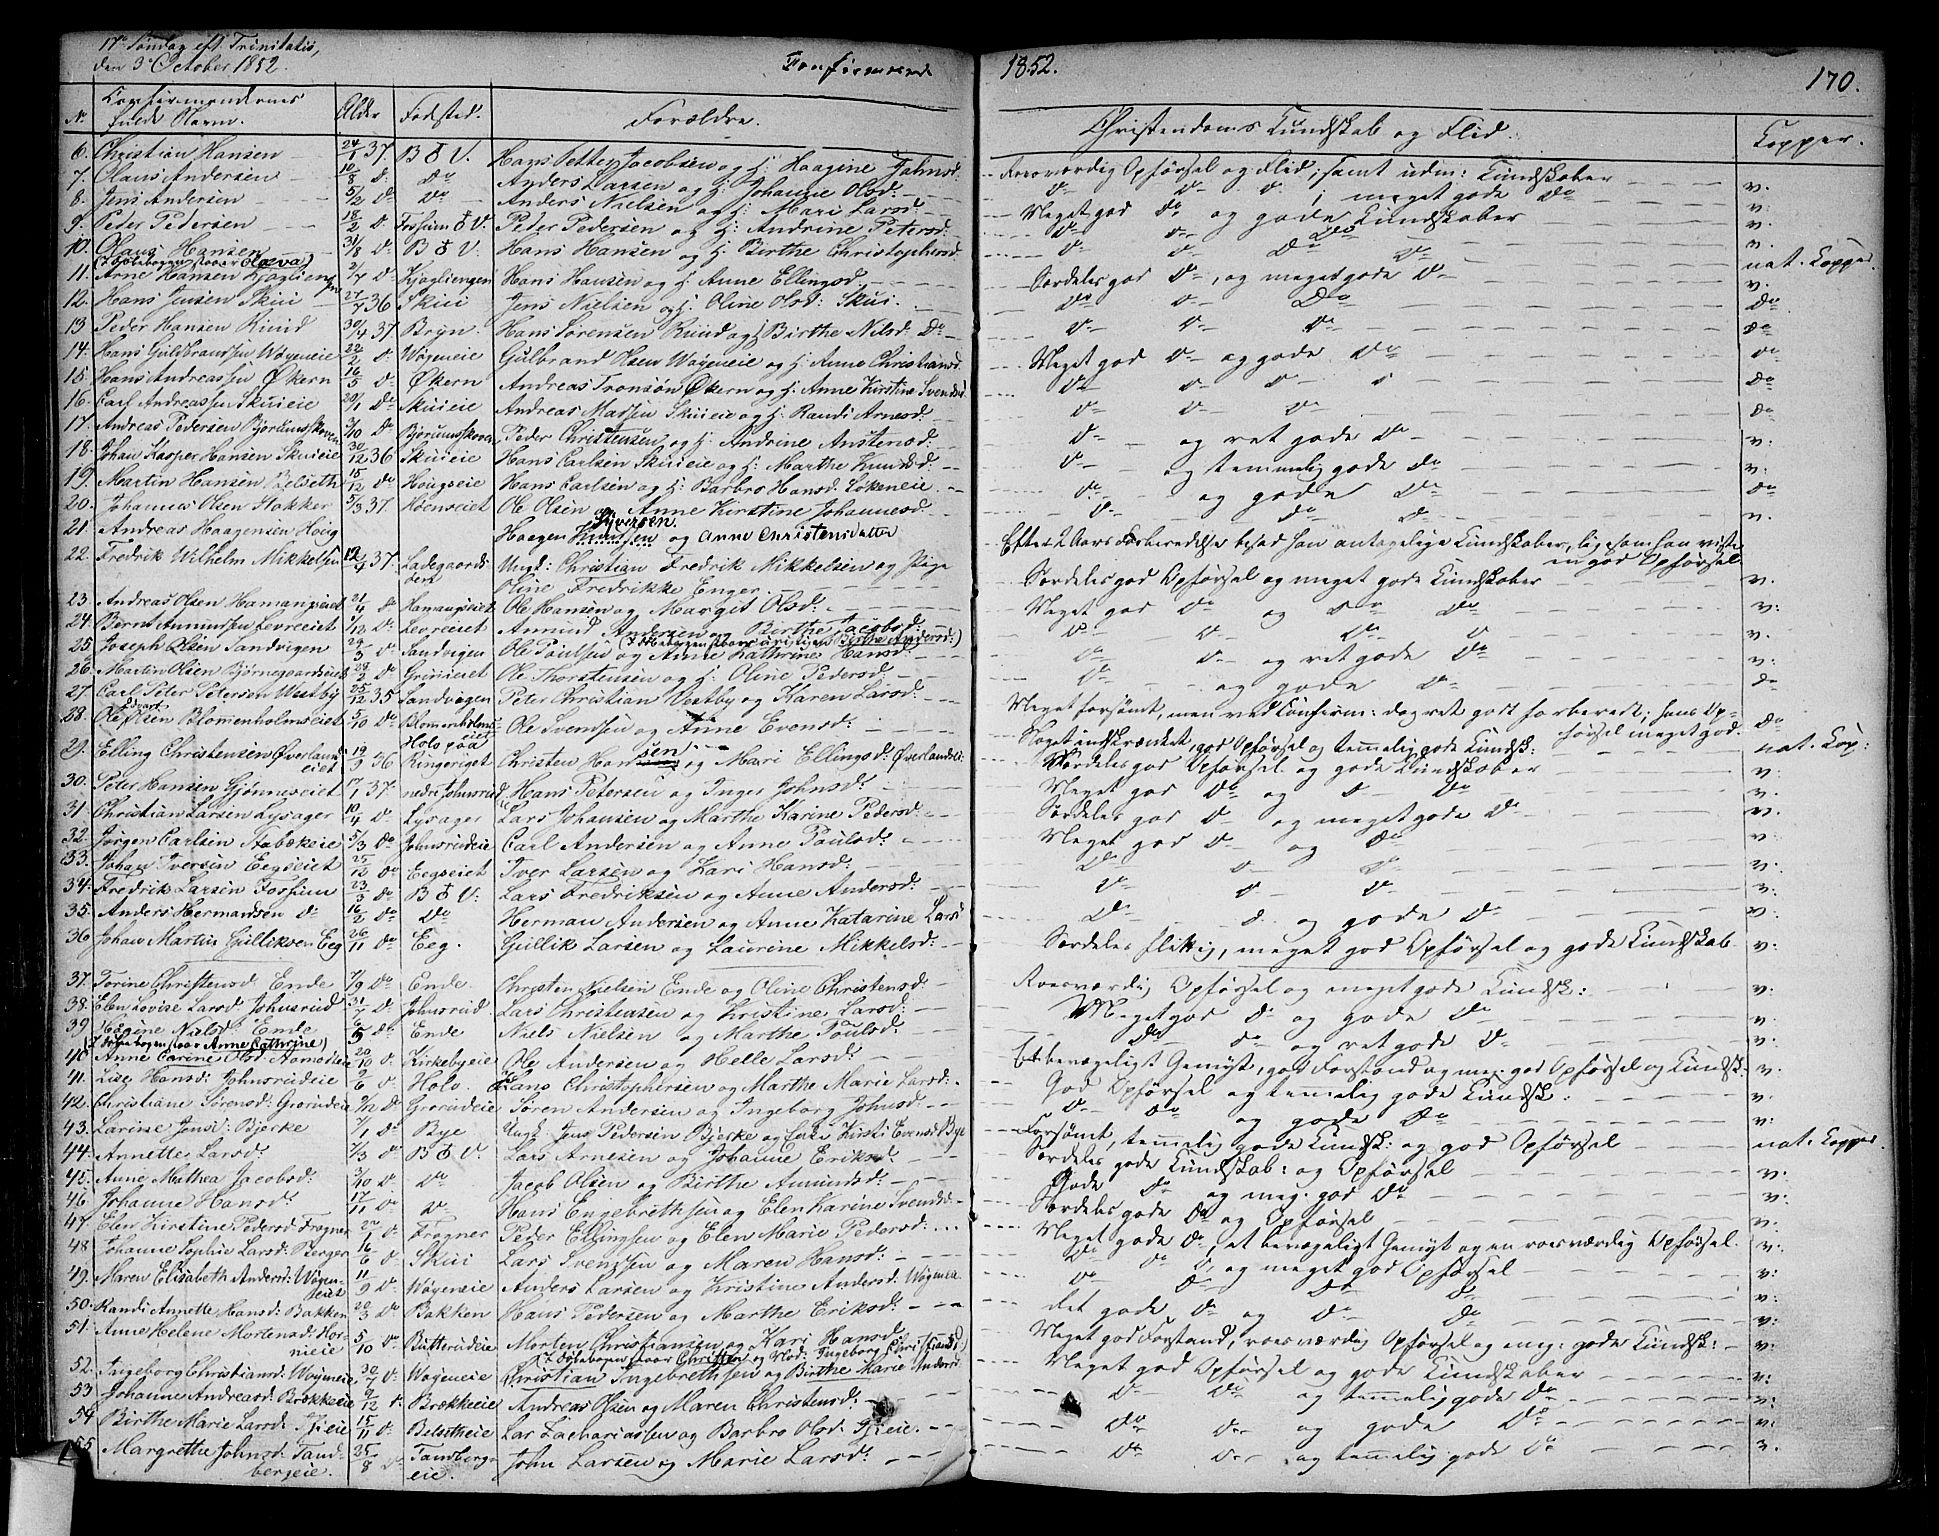 17de Søndag eft. Trinitatis,
den 3de October 1852.
Confirmerede
1852.
170.
No
Confirmandernes
fulde Navn.
Alder
Fødsted.
Forældre.
Christendoms Kundskab og Flid.
Kopper.
6. Christian Hansen 24/1 37. B & V. Hans Petter Jacobsen og H: Haagine Johnsd: Roesværdig Opførsel og Flid, samt udm: Kundskaber v.
7. Olaus Andersen 10/8 do Do Anders Larsen og H: Johanne Olsd: meget gode Do v:
8. Jens Andersen 5/2 do Do Anders Nielsen og H: Mari Larsd: Meget god Do og gode Kundskaber v:
9. Peder Pedersen 18/2 do Fossum & V. Peder Pedersen og H: Andrine Petersd: v.
10. Olaus Hansen 31/8 do B & V. Hans Hansen og H: Birthe Christophersd: nat. Kopper.
(I Døbebogen staar Oleva)
11. Arne Hansen Kjaglien 2/4 do Kjagliengen Hans Hansen og H: Anne Ellingsd: Særdeles god Do, og meget gode Do v.
12. Hans Jensen Skui 27/7 36 Skui Jens Nielsen og H: Oline Olsd: Skui. Do
13 Peder Hansen Ruud 30/4 37 Bryn. Hans Sørensen Ruud og H: Birthe Nilsd: Do Do
14. Hans Guldbransen Wøyeneie 22/2 do Wøyeneie Gulbrand Olsen Wøyeneie og H: Anne Christiansd: Meget god Do og gode Do Do
15. Hans Andreassen Økern 16/5 do Økern Andreas Tronsøn Økern og H: Anne Kirstine Svendsd: Do
16. Carl Andreassen Skuieie 20/1 Do Skuieie Andreas Madsen Skuieie og H: Randi Arnesd: Do
17. Andreas Pedersen Bjorumsskoven 3/10 Do Bjorumsskoven Peder Christensen og H: Andrine Anstensd: Do og ret gode Do v:
18. Johan Kasper Hansen Skuieie 30/12 36 Skuieie Hans Carlsen Skuieie og H: Marthe Knudsd: og temmelig gode Do v:
19. Martin Hansen Belseth 15/12 do Hougseie Hans Carlsen og H: Barbro Hansd: Løkeneie. og gode Do Do
20. Johannes Olsen Stokker 5/3 37. Høenseiet Ole Olsen og Anne Kirstine Johannesd. v.
21. Andreas Haagensen Høeg Haagen Knudsen Syversen og Anne Christensdatter Efter 2 Aars Forberedelse besad han antagelige Kundskaber, ligesom han viste en god Opførsel
22. Fredrik Wilhelm Mikkelsen 12/4 37. Ladegaards- Ungk: Christian Fredrik Mikkelsen og Pige Særdeles god Opførsel og meget gode Kundskaber v.
Oline Fredrikke Enger.
23. Andreas Olsen Hamangseiet 21/4 do Hamangseiet Ole Hansen og Margit Olsd: Meget god Do og v:
24. Bernt Amundsen Levreeiet 1/12 do Levreeiet Amund Andersen og Birthe Jacobsd. v:
(I Døbebogen staar Birthe Andersd:)
25 Joseph Olsen Sandvigen 24/3 do Sandvigen Ole Poulsen og Anne Kathrine Hansd: og ret gode Do v:
26. Martin Olsen Bjørnegaardseiet 28/2 do Grinieiet Ole Thorstensen og H: Oline Pedersd: og gode Do
27. Carl Peter Petersen Westby 25/12 35 Sandvigen Peter Christian Vestby og Karen Larsd: Meget forsømt, men ved Confirm: dog ret godt forberedt; hans Opførsel meget god. Do
28. Ole Edvart Olsen Blomenholmseiet 5/10 do Blomenholmseiet Ole Svendsen og Anne Evensd: Noget indskrænket, god Opførsel og temmelig gode Kundsk: nat. Kop:
29. Elling Christensen Øverlandseiet 19/9 36 Holo paa Ringeriget Christen Hansen og Mari Ellingsd: Øverlandsei: Særdeles god Opførsel og gode Kundskaber v:
30. Peter Hansen Gjønneseiet 17/1 37 nedre Johnsrud Hans Petersen og Inger Johnsd: Meget god Do og Do v.
31. Christian Larsen Lysager 10/4 do Lysager Lars Johansen og Marthe Karine Pedersd: Særdeles god Do og meget gode Do v.
32. Jørgen Carlsen Stabækeie 5/3 do Johnsrudeie Carl Andersen og Anne Poulsd: Meget god Do og Do v
33. Johan Iversen Eegseiet 25/12 do Eegseiet Iver Larsen og Kari Hansd: v:
34. Fredrik Larsen Fossum 23/3 do B & V: Lars Fredriksen og Anne Andersd:
35. Anders Hermandsen Do 16/2 do Do Herman Andersen og Anne Katarine Larsd og gode Do v:
36 Johan Martin Gulliksen Eeg 26/11 do Eeg. Gullik Larsen og Laurine Mikkelsd: Særdeles flittig, meget god Opførsel og gode Kundskab. v:
37. Torine Christensd. Ende 7/9 do Ende. Christen Nielsen Ende og Oline Christensd: Roesværdig Opførsel og meget gode Kundsk: v:
38. Elen Lovise Larsd. Johnsrud 31/7 do Johnsrud Lars Christensen og Kristine Larsd: Meget god Do og gode Do v.
39 Hegine Nielsd: Ende do Ende Niels Nielsen og Marthe Poulsd: og ret gode Do v.
(I Døbebogen staar Anne Cathrine)
40. Anne Carine Olsd: 20/10 do Kirkebyeie Ole Andersen og Helle Larsd: Et bevægeligt Gemyt, god Forstand og meg. god Opførsel og Kundsk: v.
41. Lise Hansd: Johnsrudeie 2/6 do Holo. Hans Christophersen og Marthe Marie Larsd: God Opførsel og temmelig gode Kundsk: v.
42. Christiane Sørensd: Grorudeie 2/12 do Grorudeie Søren Andersen og Ingeborg Johnsd: og gode Do v:
43. Larine Jensd: Bjerke 7/1 do Bye Ungk. Jens Pedersen Bjerke og Kirsti Evensd Bye Forsømt, temmelig gode Kundsk: og god Opførsel nat. Kopper.
44. Annette Larsd: 7/3 do B & V. Lars Arnesen og Johanne Eriksd. Særdeles gode Kundskab: og Opførsel v:
45. Anne Mathea Jacobsd: 3/10 do Do Jacob Olsen og Birthe Amundsd: Gode Do og meg. god Do v:
46. Johanne Hansd: 17/11 do Do Hans Engebrethsen og Elen Karine Svendsd: Særdeles gode Do og Opførsel v.
47. Elen Kirstine Pedersd. Frogner 22/1 do Frogner Peder Ellingsen og Elen Marie Pedersd: Meget gode Do, et bevægeligt Gemyt og en roesværdig Opførsel. v:
48. Johanne Sophie Larsd: Berger 16/6 do Skui Lars Svenssen og Maren Hansd: og meget god Opførsel v:
49. Maren Elisabeth Andersd: Wøyeneiet 11/9 do Wøyeneie Anders Larsen og Kristine Andersd: Wøyenei v:
50. Randi Annette Hansd: Bakken 28/3 do Bakken Hans Pedersen og Marthe Eriksd: Ret gode Do og Do v.
51. Anne Helene Mortensd: Hornieie 5/10 do Butterudeie Morten Christiansen og Kari Hansd: Meget god Forstand, roesværdig Opførsel og meg: gode Kundsk: v.
(I Døbebogen staar Christen og Mod: Ingeborg Christiansd)
52. Ingeborg Christiansd: Wøyeneie. 30/7 do Wøyeneie Christian Ingebrethsen og Birthe Marie Andersd Meget god Opførsel og gode Kundskaber v:
53. Johanne Andreasd: Brækkeeie 9/12 do Brækkeeie Andreas Olsen og Maren Christensd: og temmelig gode Do v:
54. Birthe Marie Larsd: 15/11 do Belsetheie Lar Zachariassen og Barbro Olsd: og gode Do v:
55. Margrethe Johnsd: Tandbergeie. 25/8 do Tandbergeie. John Larsen og Marie Larsd: og temmelig gode Do